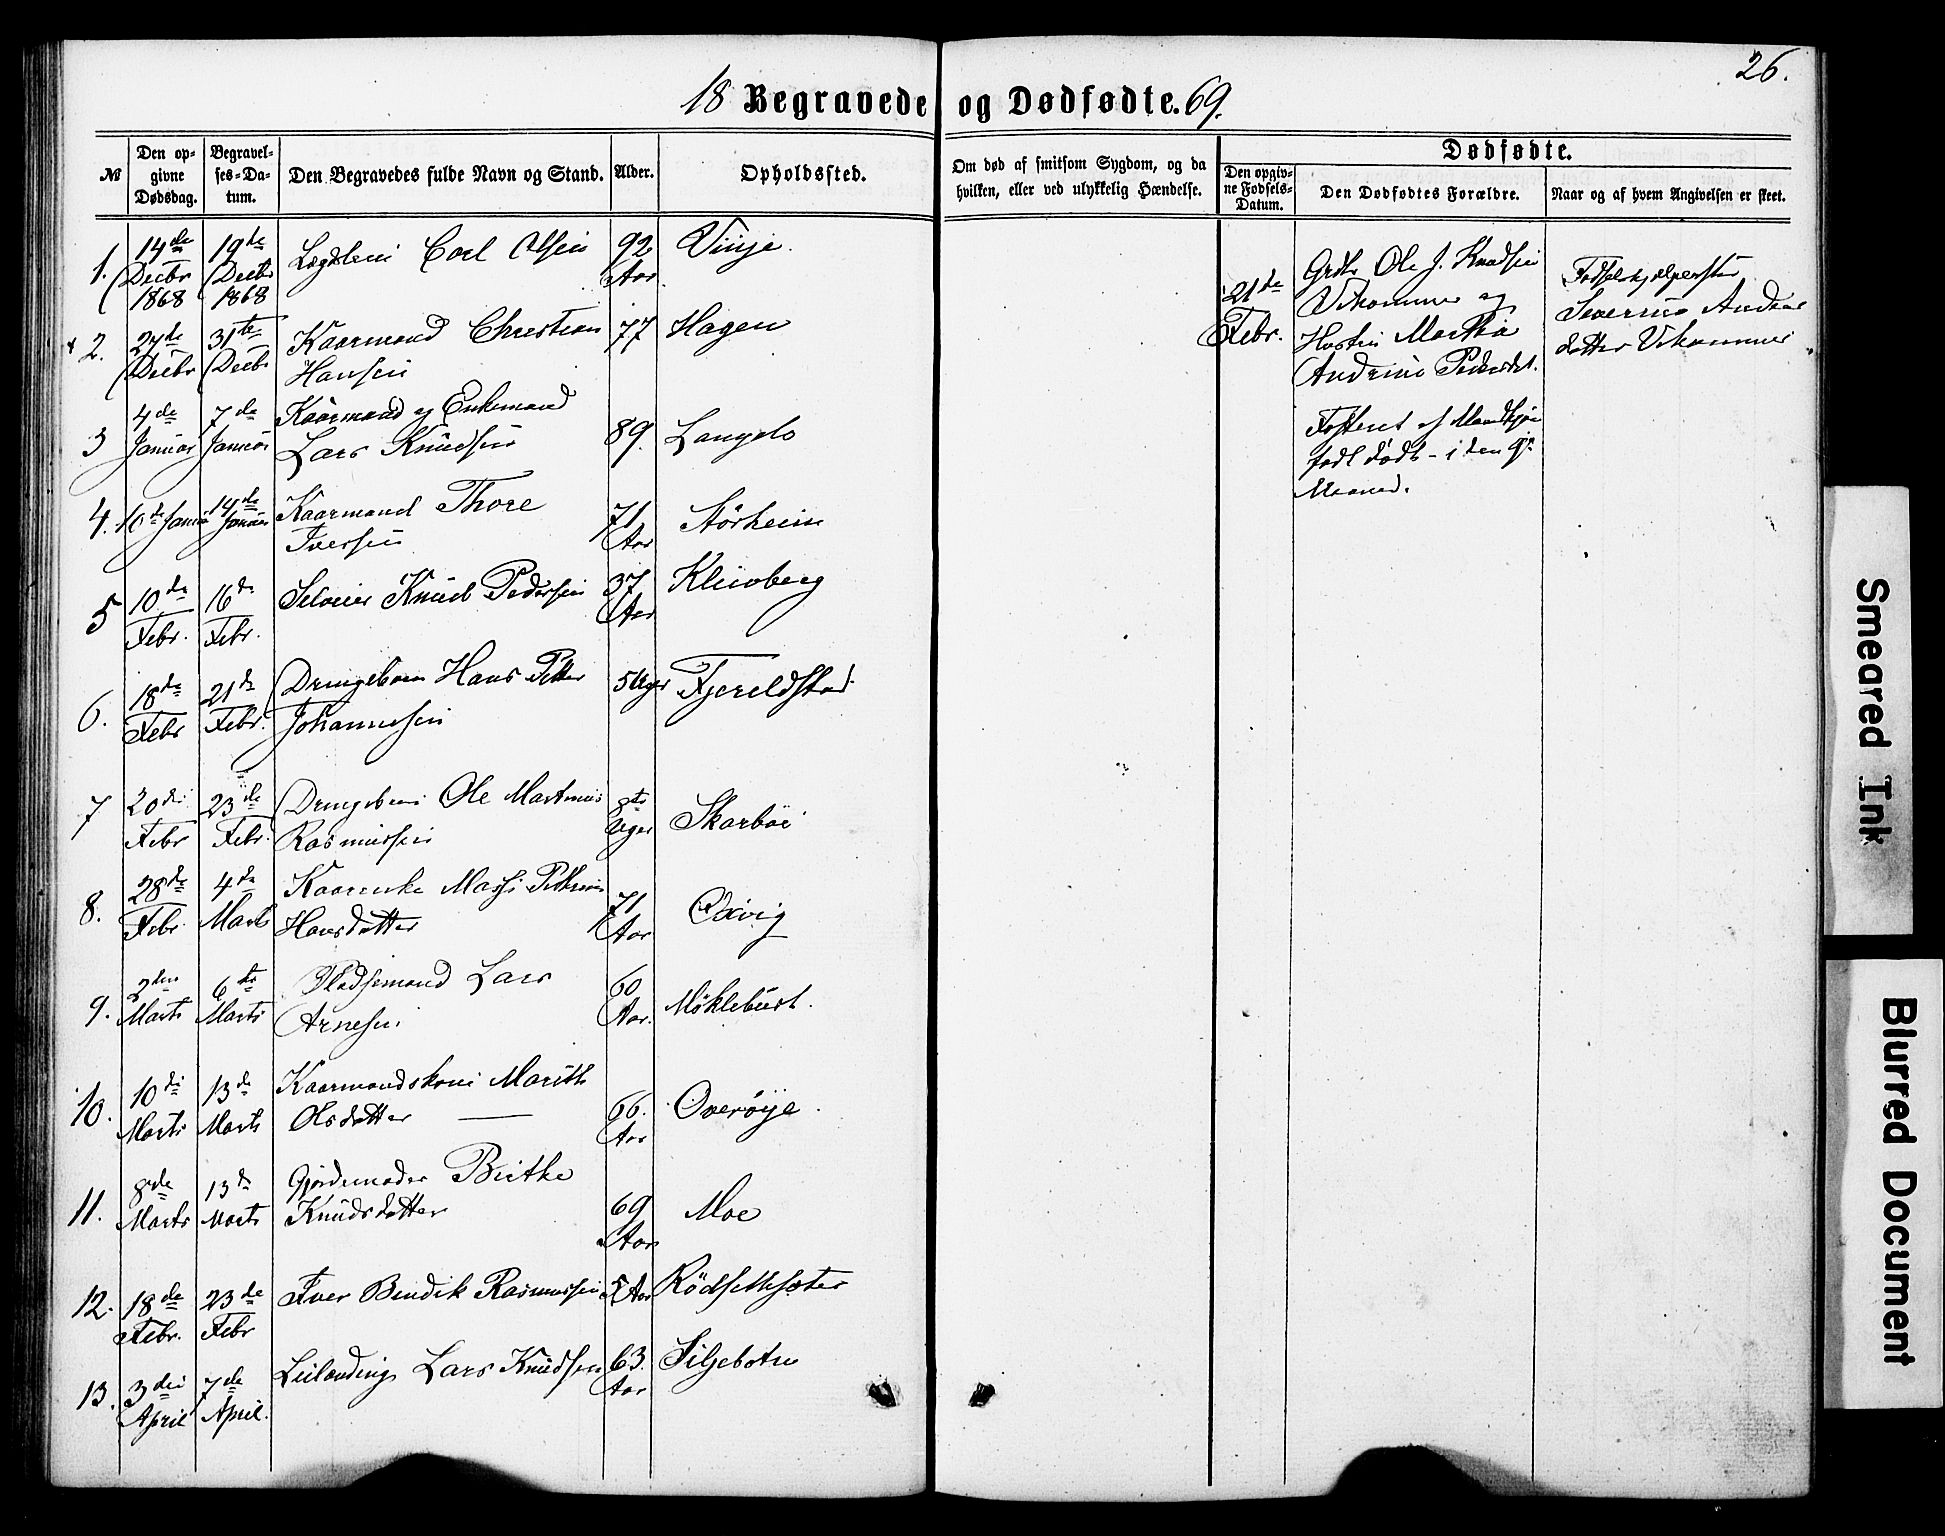 26.
18 Begravede og Dødfødte. 69.
№
Den opgivne Dødsdag.
Begravelses-Datum.
Den Begravedes fulde Navn og Stand.
Alder.
Opholdssted.
Om død af smitsom Sygdom, og da hvilken, eller ved ulykkelig Hændelse.
Dødfødte.
Den opgivne Fødsels-Datum.
Den Dødfødtes Forældre.
Naar og af hvem Angivelsen er skeet.
1. 14de Decbr 1868 19de Decbr 1868 Lægdslem Carl Olsen 92 Aar Vinje.
2. 27de Decbr 31te Decbr Kaarmand Christian Hansen 77 Hagen
3 4de Januar 7de Januar Kaarmand og Enkemand Lars Knudsen 89. Langelo
4. 10de Januar 14de Januar Kaarmand Thore Iversen 71 Aar Störheim
5 10de Febr. 16de Febr. Selveier Knud Pedersen 37 Aar
6. 18de Febr 21de Febr. Drengebarn Hans Petter Johannesen 5 Uger Fjereldstad
7 20de Febr 23de Febr. Drengebarn Ole Martinus Rasmussen 8te Uger Skarböe
8. 28de Febr 4de Marts Kaarenke Hansdatter 71 Aar Oxvig
9. 2den Marts 6te Marts Pladsemand Lars Arnesen 60 Aar. Möklebust.
10. 10de Marts 13de Marts Kaarmandskone Marith Olsdatter 66. Aar Överöije.
11. 8de Marts 13de Marts Gjordemoder Birthe Knudsdatter 69 Aar Moe
12. 18de Febr. 23de Febr Iver Bendik Rasmussen 5 Aar Rödsetsæter
13. 3die April 7de April. Leilænding Lars Knudsen 63. Aar Siljebotn
21de Febr.
Grdbr Ole J. Knudsen
Vikommer og
Hustru Martha
Andrine Pedersdt.
Fosteret af Mandkjön
födt dödt - i den 9de
Maaned.
Fødselshjelperske
Severine Anders
datter Vikommer
Smeared Ink
Blurred Document